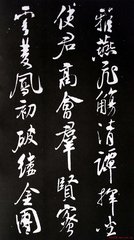 雅燕飛觴清譚揮麈
使君高會群賢密
雲雙鳳初破縷金團